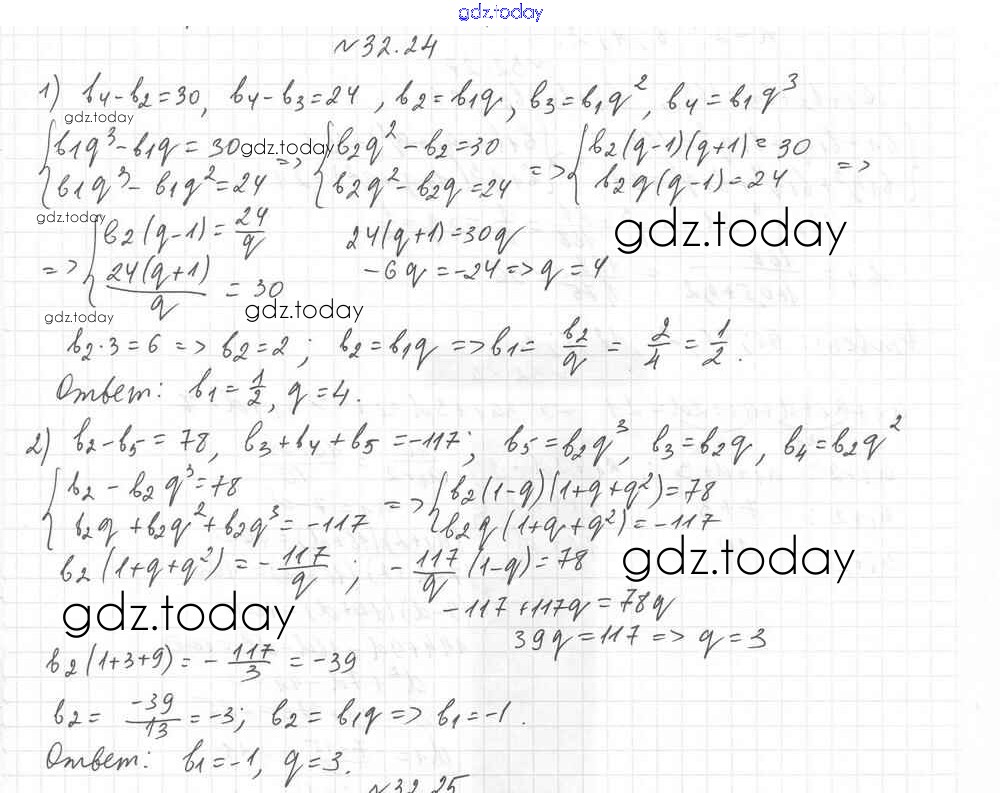 gdz.today
№32.24
1) b4-b2=30, b4-b3=24, b2=b1q, b3=b1q², b4=b1q³
gdz.today
{b1q³-b1q=30 gdz.today => {b2q²-b2=30 => {b2(q-1)(q+1)=30 =>
{b1q³-b1q²=24 {b2q²-b2q=24 {b2q(q-1)=24
gdz.today
=> {b2(q-1)=24/q 24(q+1)=30q gdz.today
{24(q+1)/q=30 -6q=-24=>q=4
gdz.today gdz.today
b2·3=6=>b2=2; b2=b1q=>b1=b2/q=2/4=1/2.
Ответ: b1=1/2, q=4.
2) b2-b5=78, b3+b4+b5=-117; b5=b2q³, b3=b2q, b4=b2q²
{b2-b2q³=78 => {b2(1-q)(1+q+q²)=78
{b2q+b2q²+b2q³=-117 {b2q(1+q+q²)=-117
b2(1+q+q²)=-117/q; -117/q(1-q)=78 gdz.today
gdz.today -117+117q=78q
39q=117=>q=3
b2(1+3+9)=-117/3=-39
b2=-39/13=-3; b2=b1q=>b1=-1.
Ответ: b1=-1, q=3.
№32.25